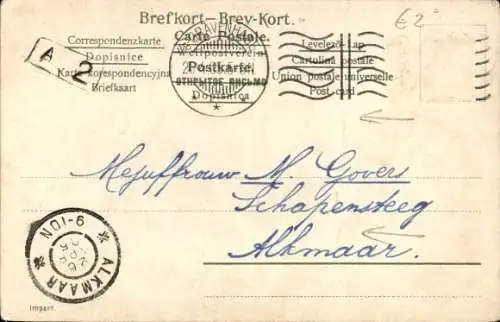 Brefkort—Brev-Kort.
Correspondenzkarte Carte Postale. Levelező-Lap
Dopisnice Weltpostverein Cartolina postale
Karta korespondencyjna Postkarte. Union postale universelle
Briefkaart ОТКРЫТОЕ ПИСЬМО Post card
Dopisnica
A 2
€ 2
Mejuffrouw M. Govers
Schapensteeg
Alkmaar.
ALKMAAR
9-10N
26
Import.